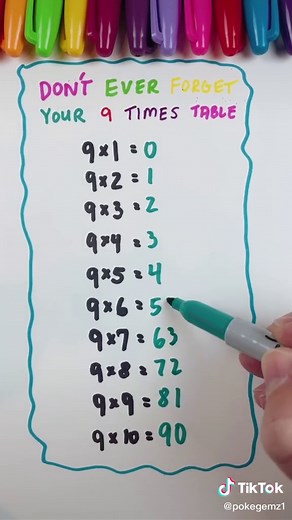 DON'T EVER FORGET
YOUR 9 TIMES TABLE
9×1=0
9×2=1
9×3=2
9×4=3
9×5=4
9×6=5
9×7=63
9×8=72
9×9=81
9×10=90
TikTok
@pokegemz1